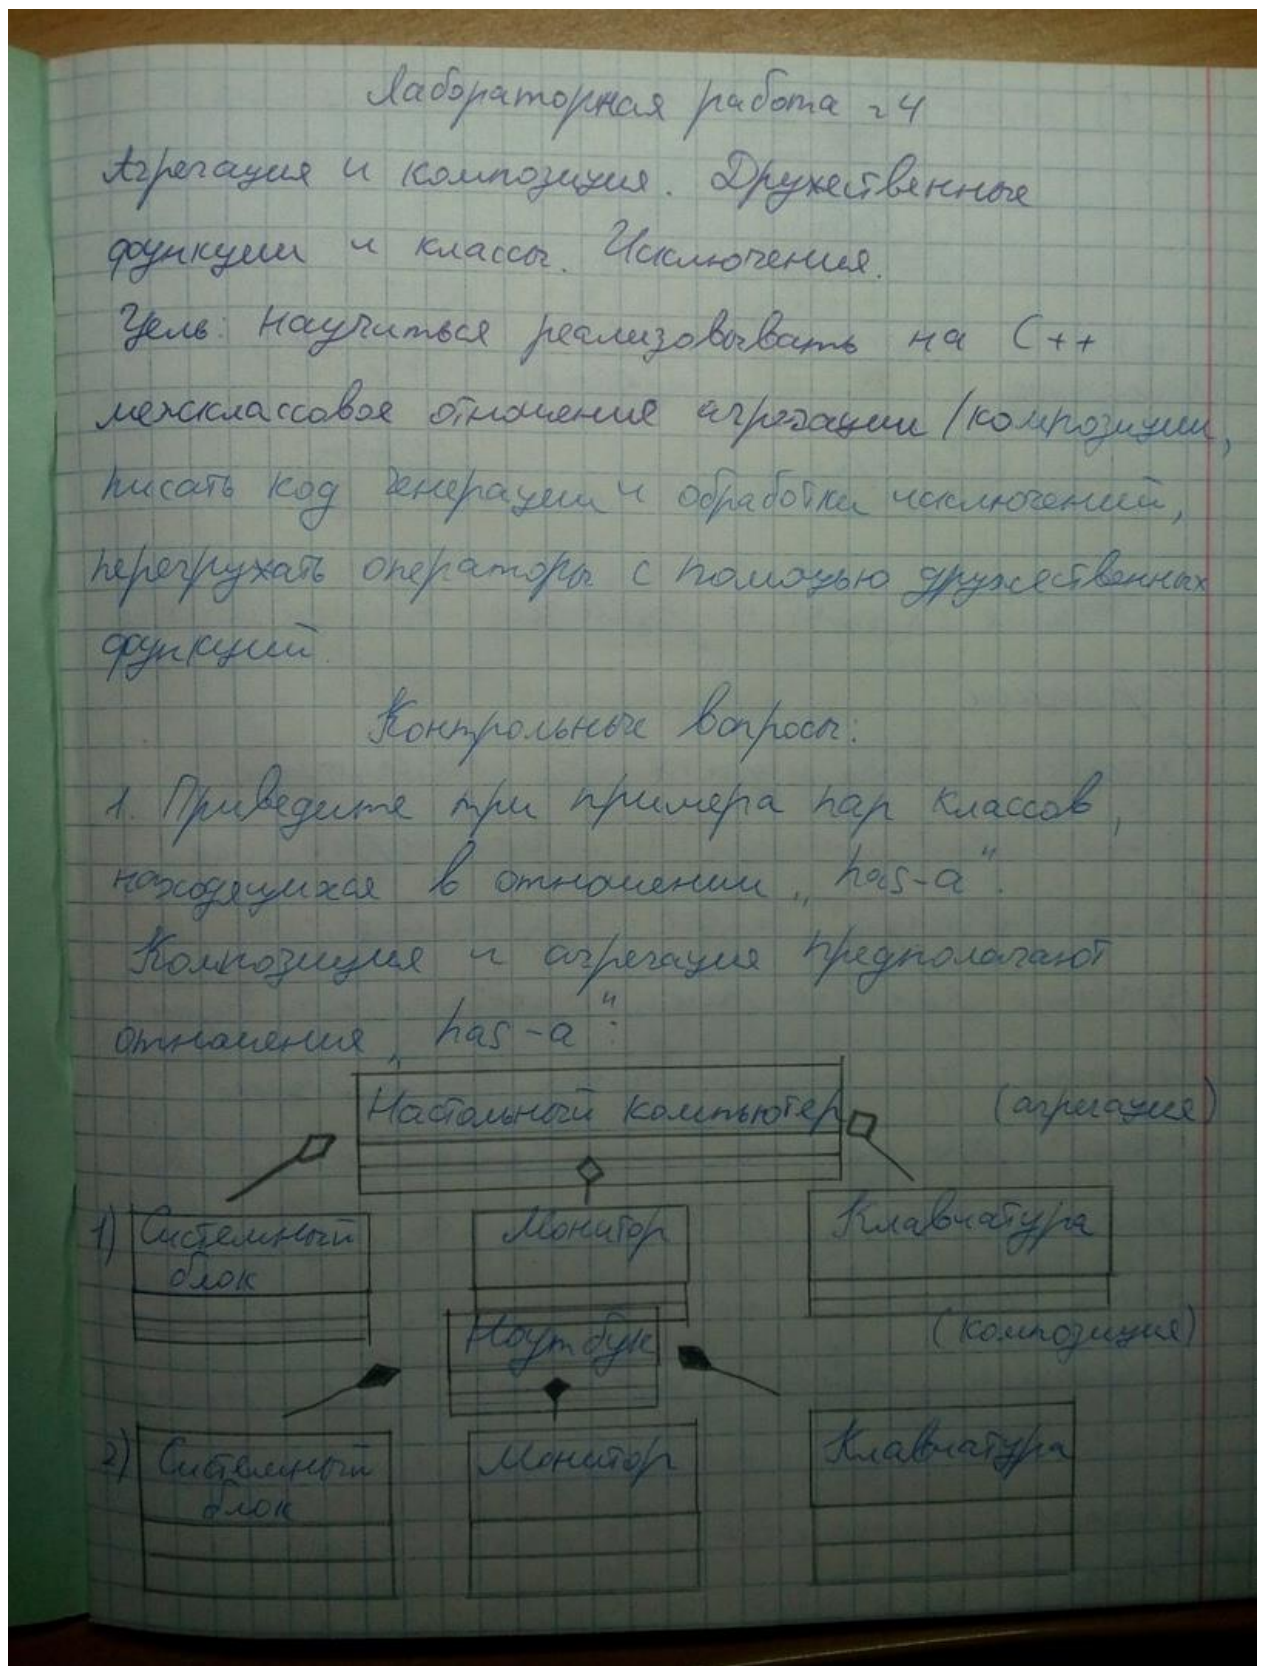 Лабораторная работа №4
Агрегация и композиция. Дружественные
функции и классы. Исключения.
Цель: научиться реализовывать на C++
межклассовое отношение агрегации/композиции,
писать код генерации и обработки исключений,
перегружать операторы с помощью дружественных
функций.
Контрольные вопросы:
1. Приведите три примера пар классов,
находящихся в отношении „has-a“.
Композиция и агрегация предполагают
отношения „has-a“:
Настольный компьютер (агрегация)
1) Системный Монитор Клавиатура
блок
Ноутбук (композиция)
2) Системный Монитор Клавиатура
блок